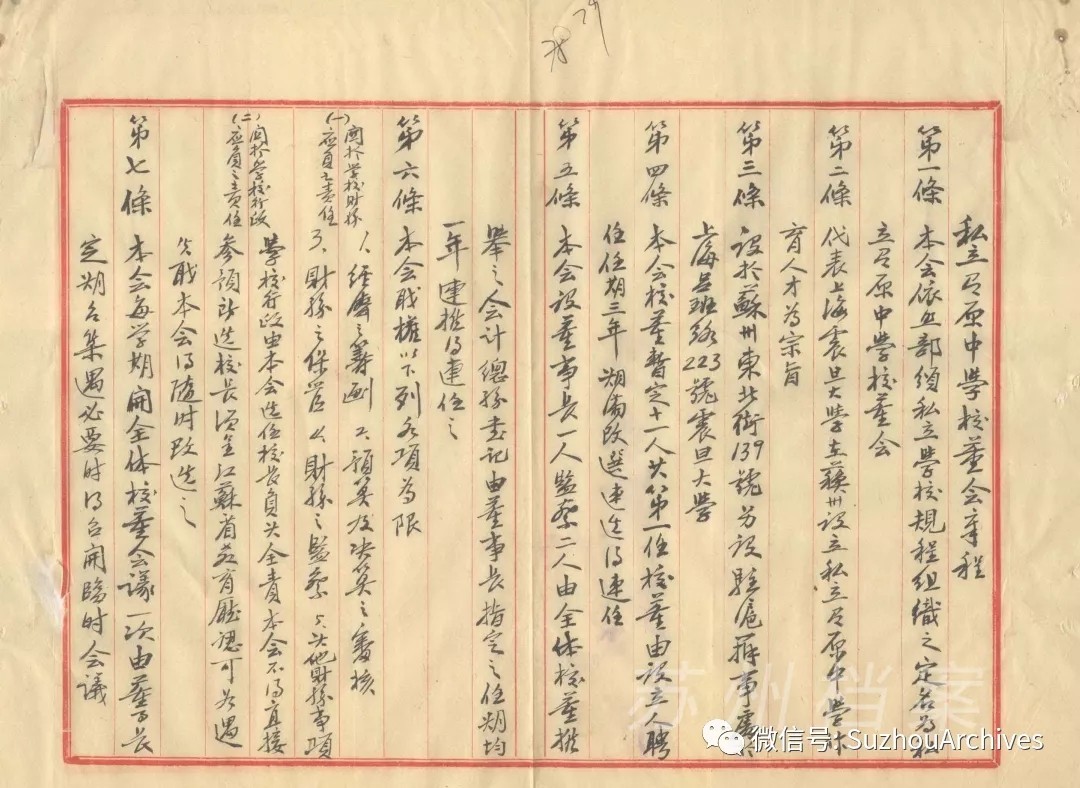 私立有原中學校董會章程
第一條 本会依照部頒私立學校規程組織之定名為私
立有原中學校董会
第二條 代表上海震旦大學在蘇州設立私立有原中學培
育人才為宗旨
第三條 設於蘇州東北街139號另設駐滬辦事處於
上海呂班路223號震旦大學
第四條 本会校董暫定十一人其第一任校董由設立人聘
任任期三年期滿改選連選得連任
第五條 本会設董事長一人監察二人由全体校董推
舉之会計總務書記由董事長指定之任期均
一年連推得連任之
第六條 本会職權以下列各項為限
(一)關於學校財務應負之責任 1、經費之籌劃 2、預算及決算之審核
3、財務之保管 4、財務之監察 5、其他財務事項
(二)關於學校行政應負之責任 學校行政由本会选任校長負其全責本会不得直接
參預所选校長須呈江蘇省教育廳認可如遇
失職本会得隨时改选之
第七條 本会每学期開全体校董会議一次由董事長
定期召集遇必要时得召開臨时会議
苏州档案
微信号: SuzhouArchives